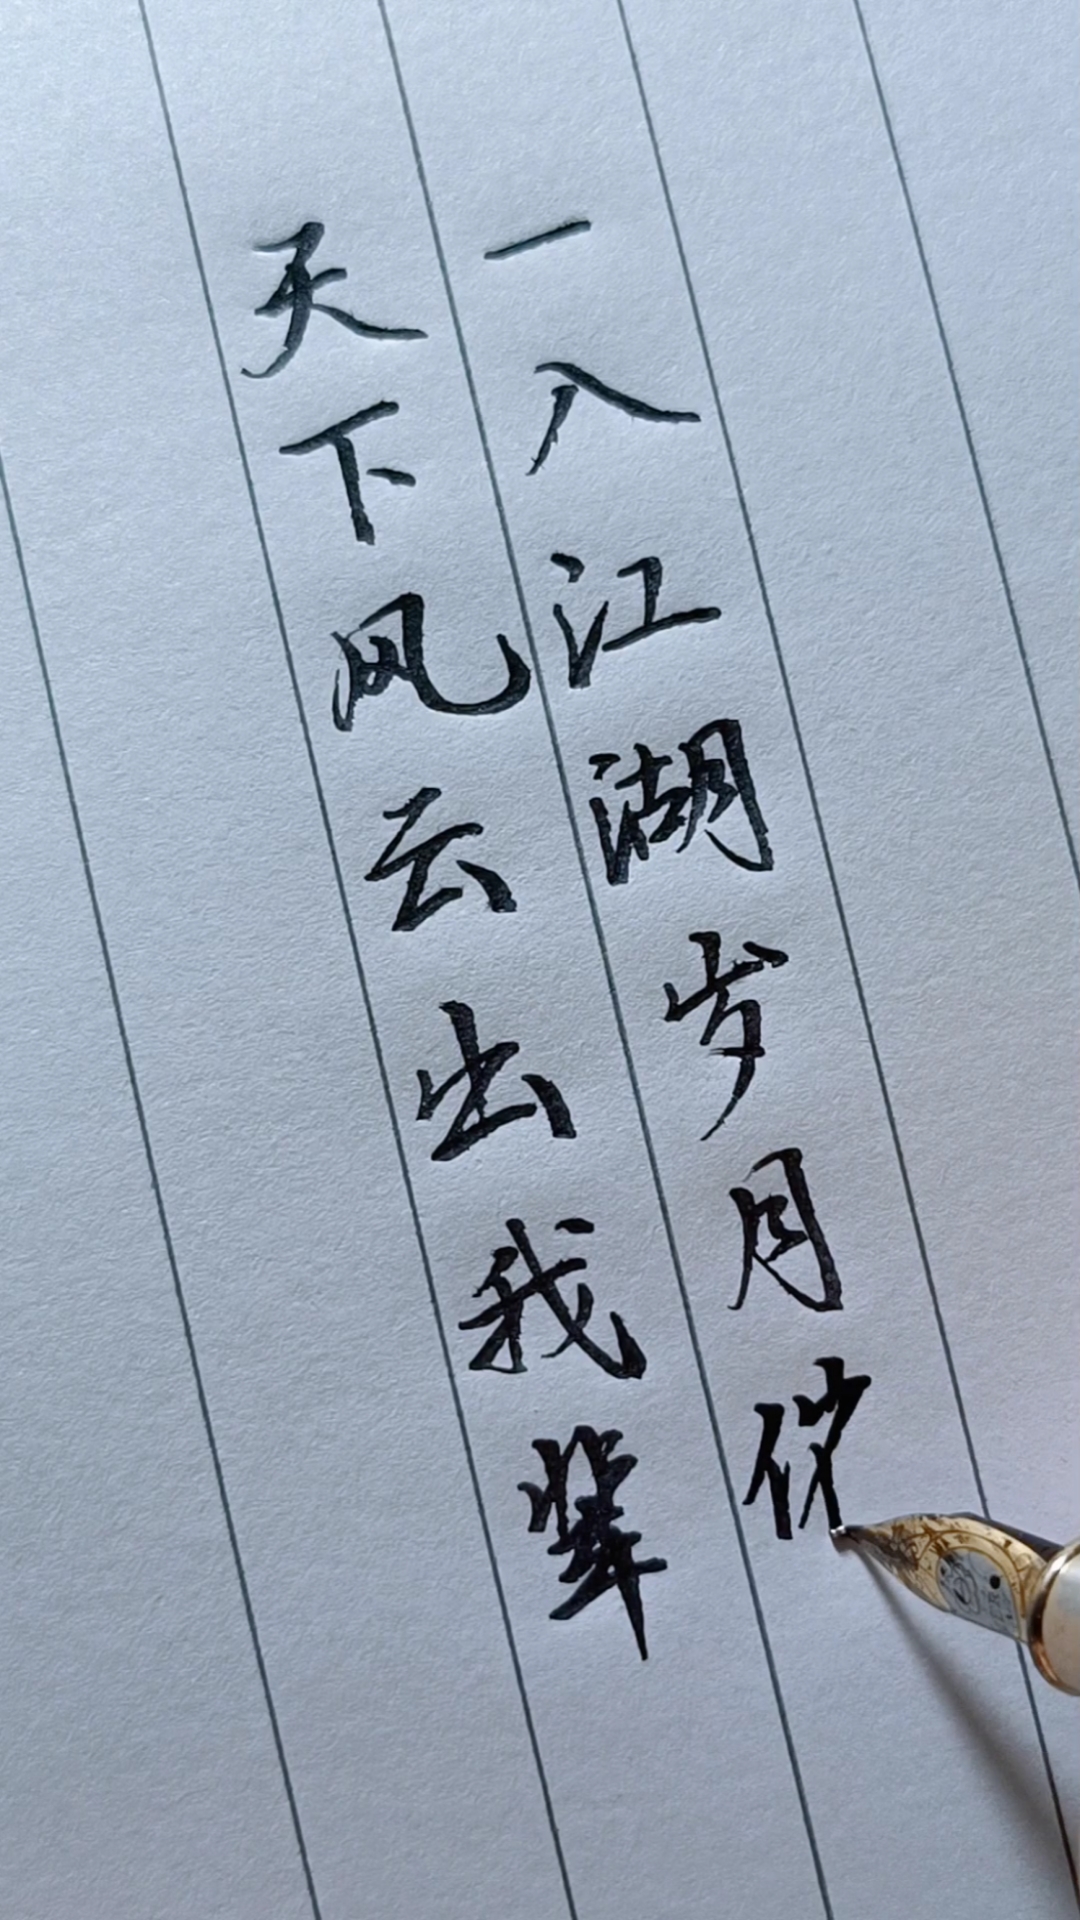 天下风云出我辈
一入江湖岁月